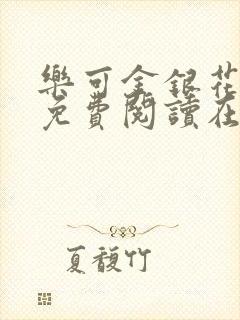 樂可金銀花
免費閱讀在
夏馥竹